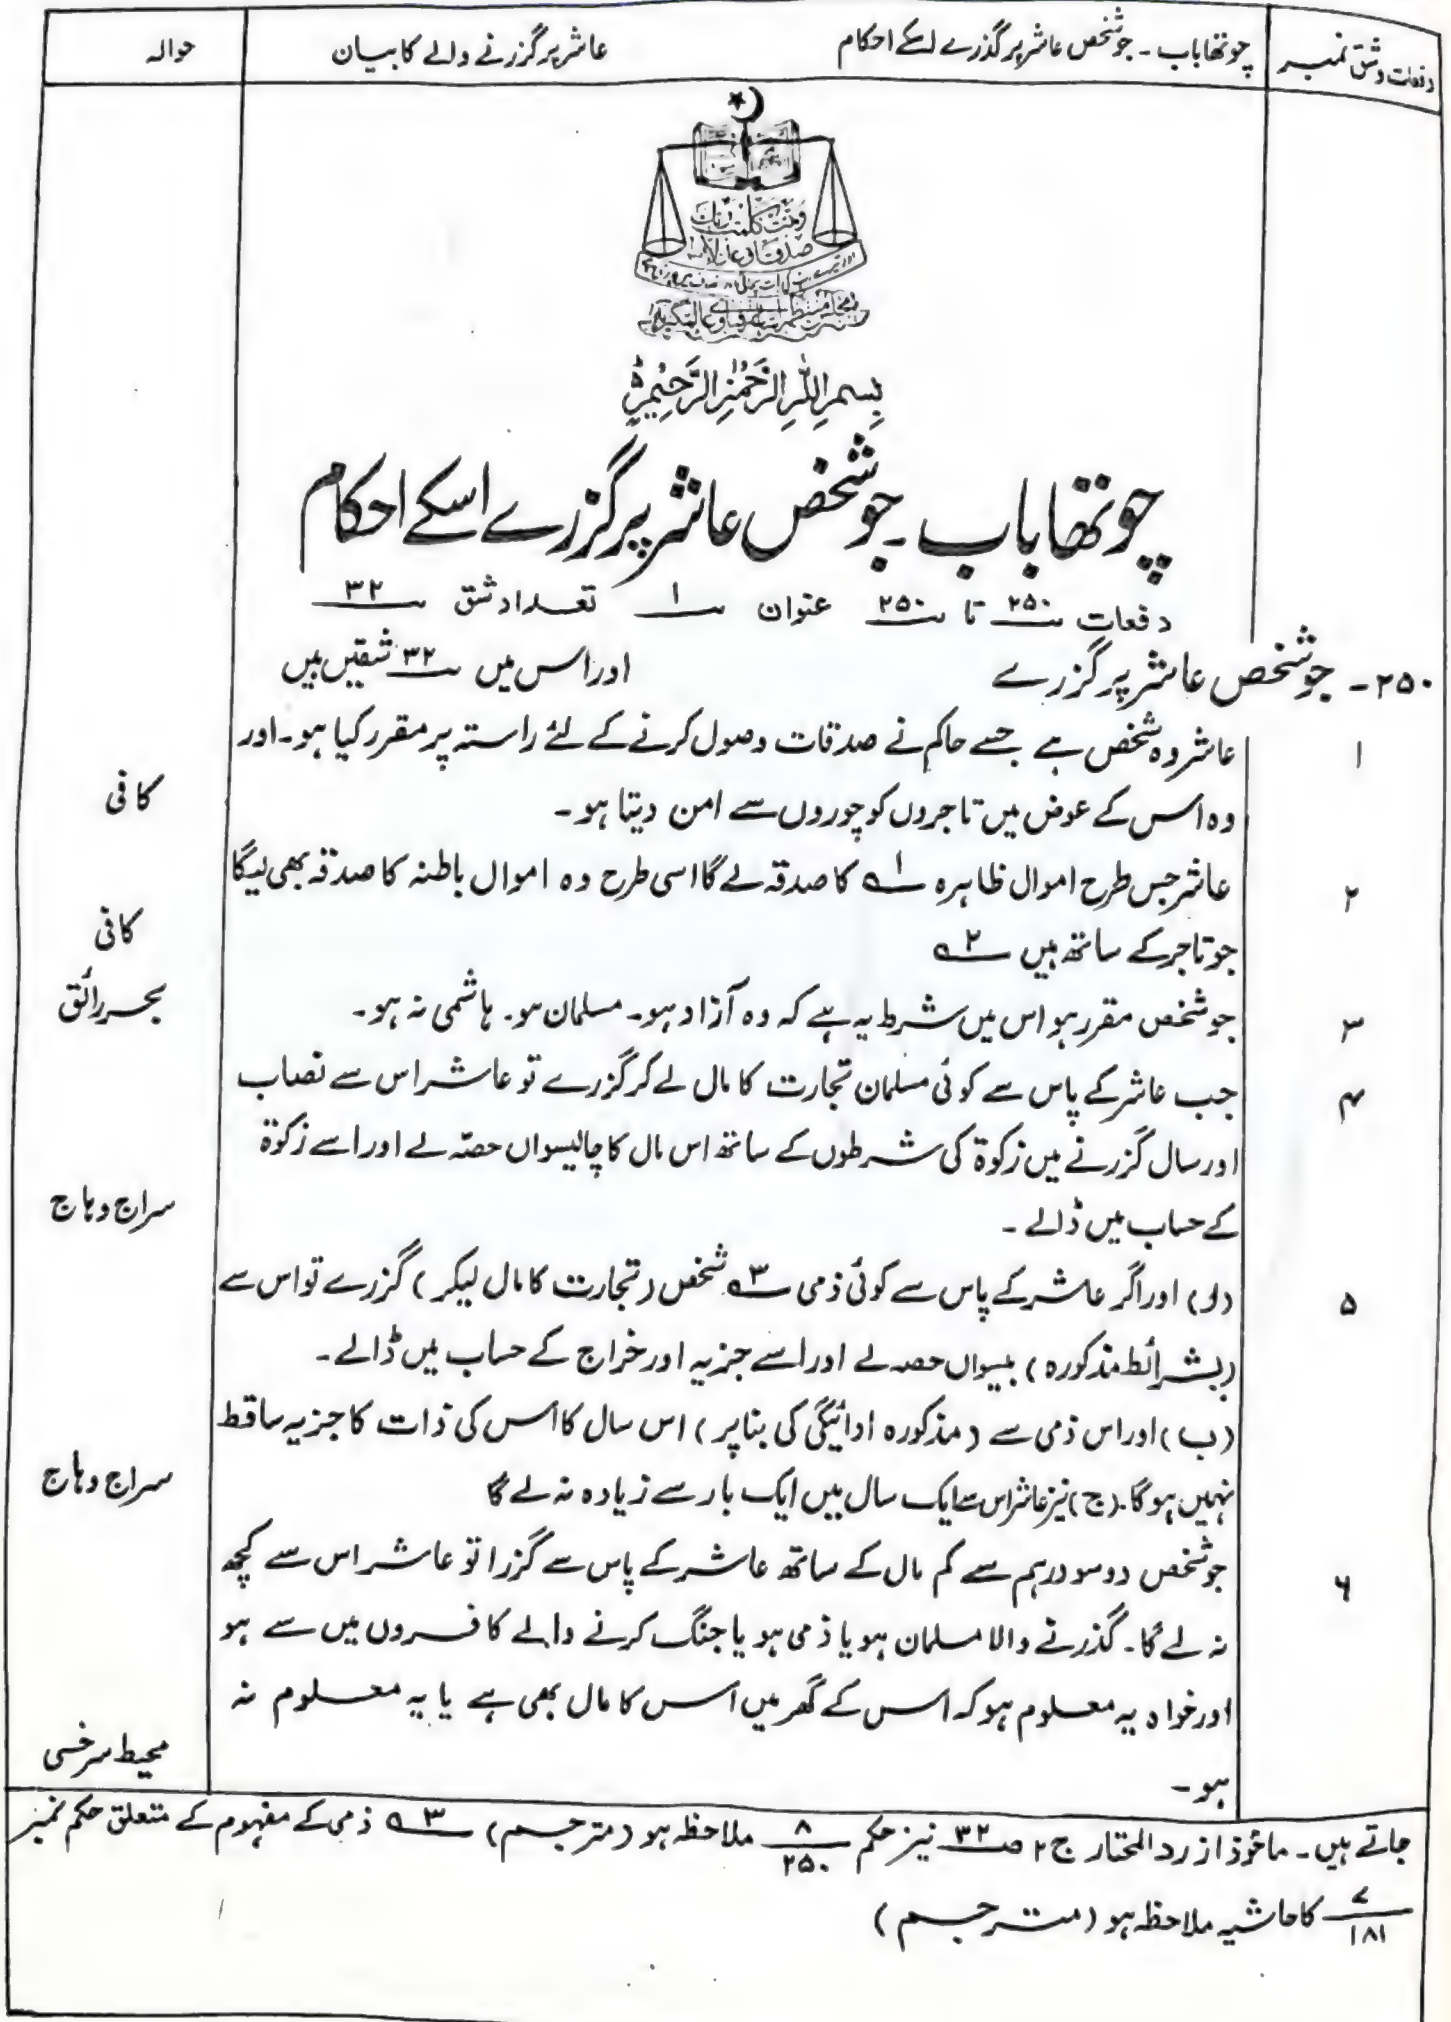 دفعات و شق نمبر
چوتھا باب ۔ جو شخص عاشر پر گذرے اسکے احکام
عاشر پر گزرنے والے کا بیان
حوالہ
وتمت کلمت ربک
صدقا وعدلا
بسم اللہ الرحمٰن الرحیم
چوتھا باب ۔ جو شخص عاشر پر گزرے اسکے احکام
دفعات ۲۵۰ تا ۲۵۰ عنوان ۱ تعداد شق ۳۲
۲۵۰ ۔ جو شخص عاشر پر گزرے اور اس میں ۳۲ شقیں ہیں
۱ عاشر وہ شخص ہے جسے حاکم نے صدقات وصول کرنے کے لئے راستہ پر مقرر کیا ہو ۔ اور
وہ اس کے عوض میں تاجروں کو چوروں سے امن دیتا ہو ۔ کافی
۲ عاشر جس طرح اموال ظاہرہ ۱؎ کا صدقہ لے گا اسی طرح وہ اموال باطنہ کا صدقہ بھی لیگا
جو تاجر کے ساتھ ہیں ۲؎ کافی
۳ جو شخص مقرر ہو اس میں شرط یہ ہے کہ وہ آزاد ہو ۔ مسلمان ہو ۔ ہاشمی نہ ہو ۔ بحر رائق
۴ جب عاشر کے پاس سے کوئی مسلمان تجارت کا مال لے کر گزرے تو عاشر اس سے نصاب
اور سال گزرنے میں زکوٰۃ کی شرطوں کے ساتھ اس مال کا چالیسواں حصّہ لے اور اسے زکوٰۃ
کے حساب میں ڈالے ۔ سراج وہاج
۵ (ا) اور اگر عاشر کے پاس سے کوئی ذمی ۳؎ شخص (تجارت کا مال لیکر) گزرے تو اس سے
(بشرائط مذکورہ) بیسواں حصہ لے اور اسے جزیہ اور خراج کے حساب میں ڈالے ۔
(ب) اور اس ذمی سے (مذکورہ ادائیگی کی بنا پر) اس سال کا اس کی ذات کا جزیہ ساقط
نہیں ہو گا ۔ (ج) نیز عاشر اس سے ایک سال میں ایک بار سے زیادہ نہ لے گا سراج وہاج
۶ جو شخص دو سو درہم سے کم مال کے ساتھ عاشر کے پاس سے گزرا تو عاشر اس سے کچھ
نہ لے گا ۔ گذرنے والا مسلمان ہو یا ذمی ہو یا جنگ کرنے والے کافروں میں سے ہو
اور خواہ یہ معلوم ہو کہ اس کے گھر میں اس کا مال بھی ہے یا یہ معلوم نہ
ہو ۔ محیط سرخسی
جاتے ہیں ۔ ماخوذ از رد المحتار ج ۲ ص ۳۲ نیز حکم ۸/۲۵۰ ملاحظہ ہو (مترجم) ۳؎ ذمی کے مفہوم کے متعلق حکم نمبر
۷/۱۸۱ کا حاشیہ ملاحظہ ہو (مترجم)